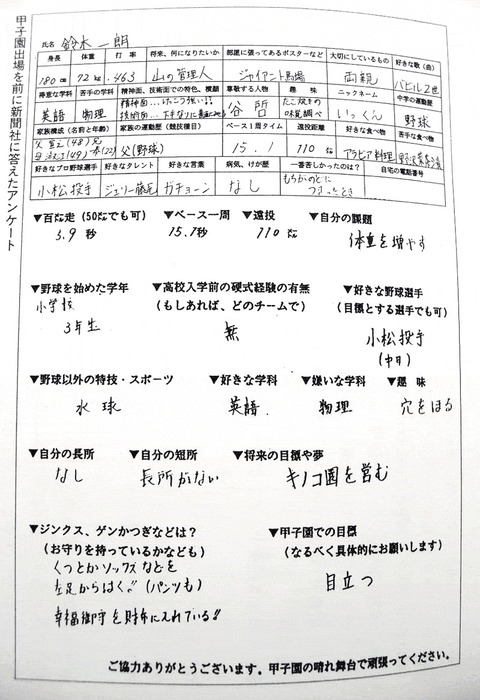 甲子園出場を前に新聞社に答えたアンケート
氏名 鈴木一朗
身長 体重 打率 将来、何になりたいか 部屋に張ってあるポスターなど 大切にしているもの 好きな歌(曲)
180cm 72kg .463 山の管理人 ジャイアント馬場 両親 バビル2世
得意な学科 苦手の学科 精神面、技術面での特色、横顔 尊敬する人物 趣味 ニックネーム 中学の運動歴
英語 物理 精神面…けっこう強い!! 技術面… 谷哲 たこ焼きの味覚調べ いっくん 野球
家族構成(名前と年齢) 家族の運動歴(競技種目) ベース1周タイム 遠投距離 好きな食べ物 苦手な食べ物
父(野球) 15.1 110m アラビア料理
好きなプロ野球選手 好きなタレント 好きな言葉 病気、けが歴 一番苦しかったのは? 自宅の電話番号
小松投手 ジェリー藤尾 ガチョーン なし もちがのどにつまったとき
▼百㍍走(50㍍でも可) ▼ベース一周 ▼遠投 ▼自分の課題
5.9秒 15.1秒 110㍍ 体重を増やす
▼野球を始めた学年 ▼高校入学前の硬式経験の有無 ▼好きな野球選手
(もしあれば、どのチームで) (目標とする選手でも可)
小学校
3年生 無 小松投手
(中日)
▼野球以外の特技・スポーツ ▼好きな学科 ▼嫌いな学科 ▼趣味
水球 英語 物理 穴をほる
▼自分の長所 ▼自分の短所 ▼将来の目標や夢
なし 長所がない キノコ園を営む
▼ジンクス、ゲンかつぎなどは? ▼甲子園での目標
(お守りを持っているかなども) (なるべく具体的にお願いします)
くつとかソックスなどを
左足からはく!!(パンツも) 目立つ
幸福御守を財布に入れている!!
ご協力ありがとうございます。甲子園の晴れ舞台で頑張ってください。